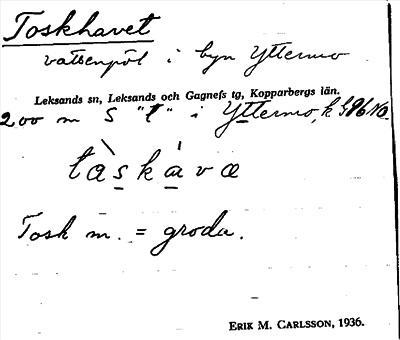 Toskhavet
vattenpöl i byn Yttermo
Leksands sn, Leksands och Gagnefs tg, Kopparbergs län.
200 m S "t" i Yttermo, k. 96 NO.
tàskáva
Tosk m. = groda.
ERIK M. CARLSSON, 1936.